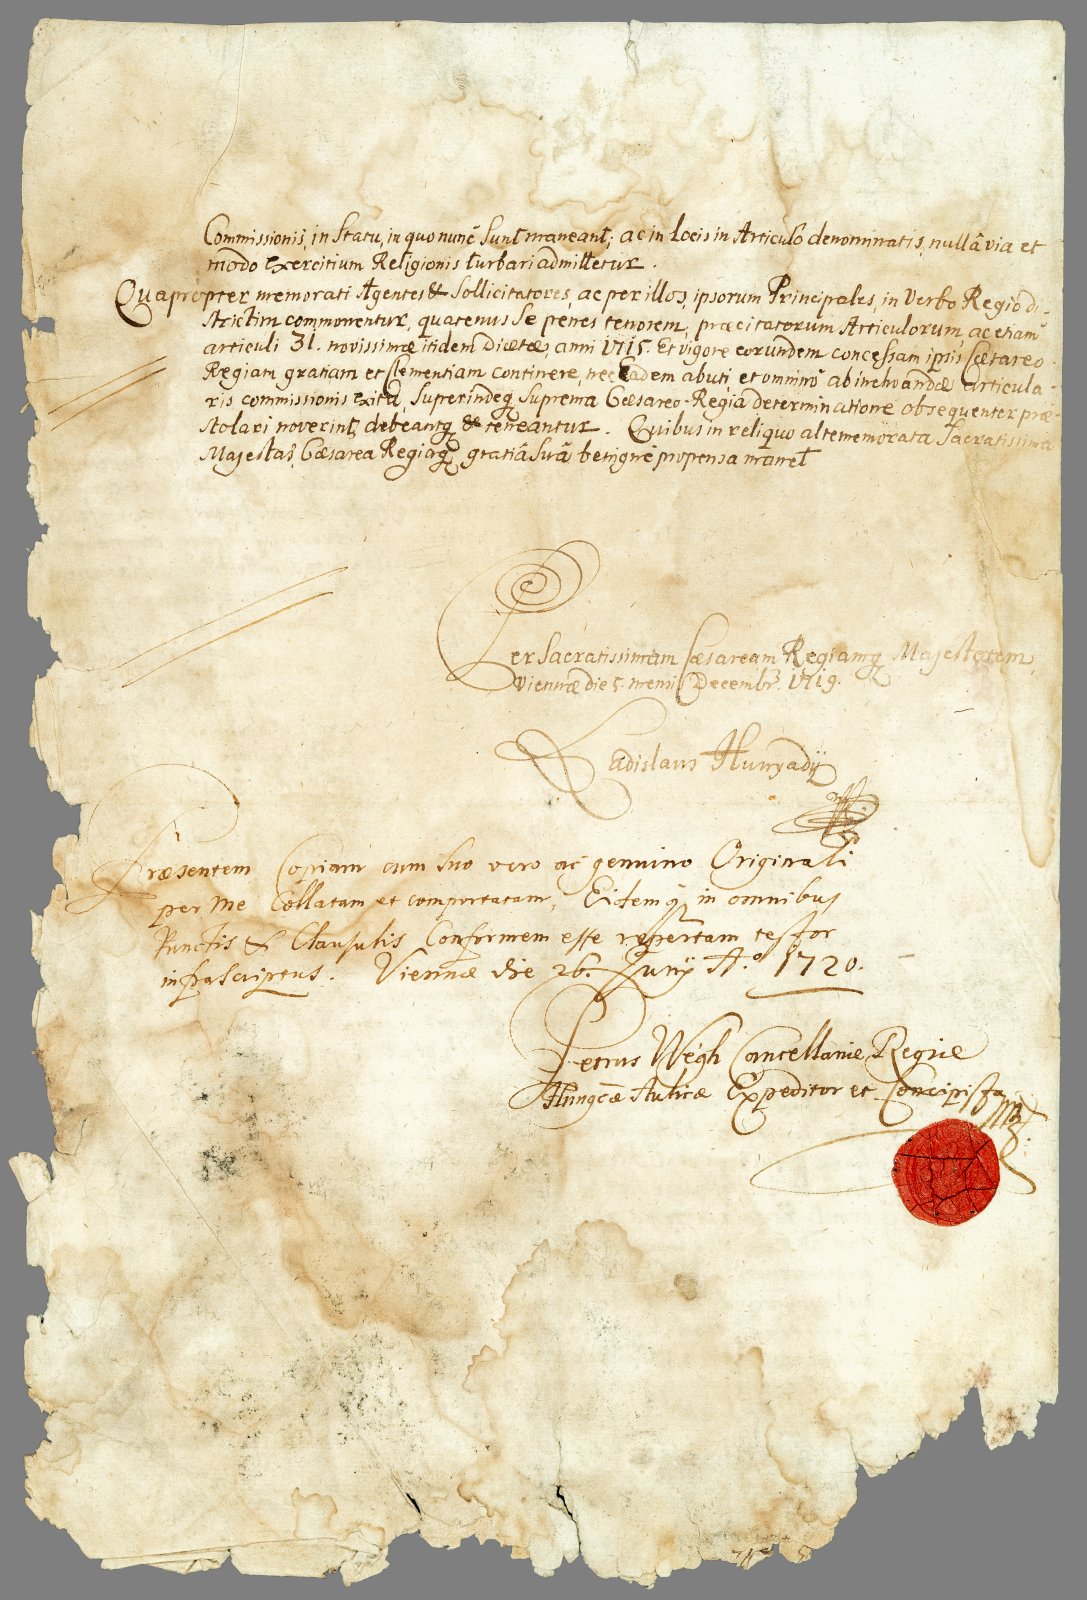 Commissionis, in Statu, in quo nunc sunt maneant; ac in Locis in Articulo denominatis, nullâ via et
modo Exercitium Religionis turbari admittetur.
Quapropter memorati Agentes & Sollicitatores, ac per illos, ipsorum Principales, in Verbo Regio di-
strictim commonentur, quatenus se penes tenorem, præcitatorum Articulorum, ac etiam
articuli 31. novissimæ itidem Diætæ, anni 1715. Et vigore eorundem concessam ipsis Cæsareo
Regiam gratiam et Clementiam continere, nec Eadem abuti et omnino ab inchoandæ articula-
ris commissionis exitu, superindeq suprema Cæsareo-Regia determinatione obsequenter præ-
stolari noverint, debeantq & teneantur. Quibus in reliquo altememorata Sacratissima
Majestas, Cæsarea Regiaq, gratiâ suâ benigne propensa manet
Per Sacratissimam Cæsaream Regiamq Majestatem
Viennæ die 5. mensis Decembr. 1719.
Ladislaus Hunyadÿ
Præsentem Copiam cum suo vero ac genuino Originali
per me Collatam et comportatam, Eidemq in omnibus
Punctis & Clausulis Conformem esse repertam testor
infrascriptus. Viennæ die 26. Junÿ Aº. 1720.
Petrus Wégh Cancellariæ Regiæ
Hungcæ Aulicæ Expeditor et Concipista